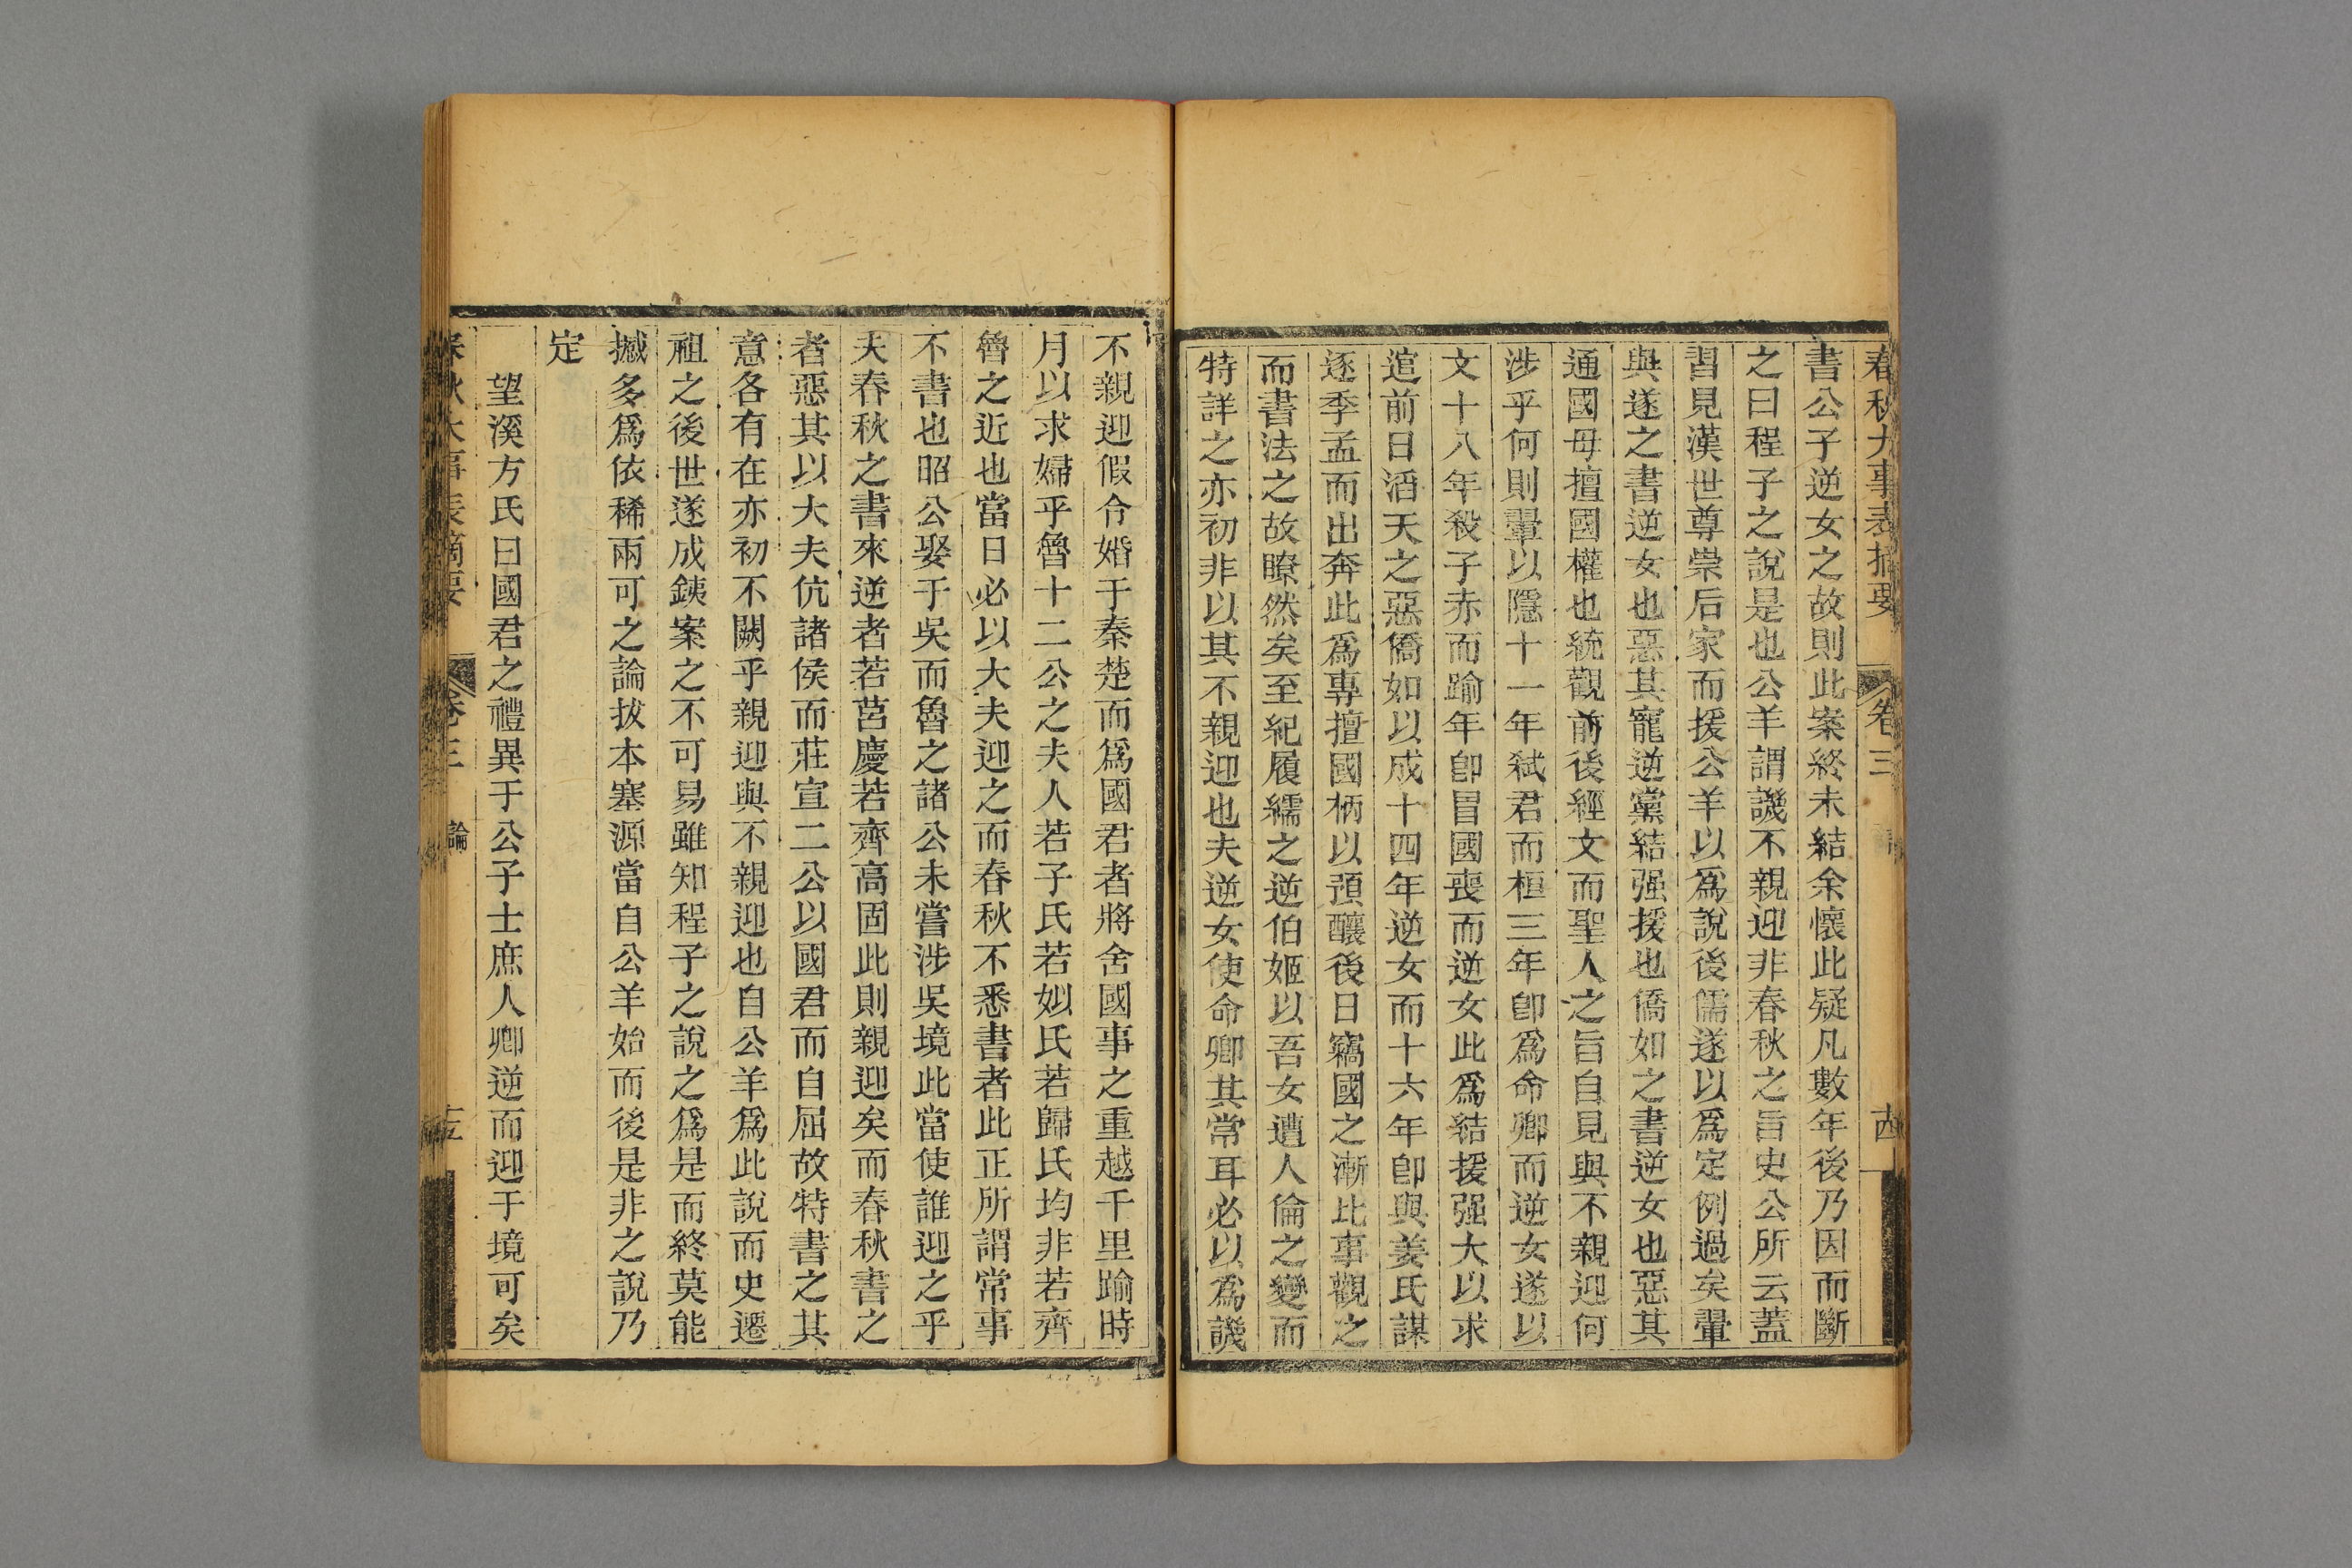 春秋大事表摘要 卷三 古
書公子逆女之故則此案終未結余懷此疑凡數年後乃因而斷
之曰程子之說是也公羊謂譏不親迎非春秋之旨史公所云蓋
習見漢世尊崇后家而援公羊以爲說後儒遂以爲定例過矣翬
與遂之書逆女也惡其寵逆黨結强援也僑如之書逆女也惡其
通國母擅國權也統觀前後經文而聖人之旨自見與不親迎何
涉乎何則翬以隱十一年弒君而桓三年卽爲命卿而逆女遂以
文十八年殺子赤而踰年卽冒國喪而逆女此爲結援强大以求
逭前日滔天之惡僑如以成十四年逆女而十六年卽與姜氏謀
逐季孟而出奔此爲專擅國柄以預釀後日竊國之漸比事觀之
而書法之故瞭然矣至紀履繻之逆伯姬以吾女遭人倫之變而
特詳之亦初非以其不親迎也夫逆女使命卿其常耳必以爲譏
不親迎假令婚于秦楚而爲國君者將舍國事之重越千里踰時
月以求婦乎魯十二公之夫人若子氏若姒氏若歸氏均非若齊
魯之近也當日必以大夫迎之而春秋不悉書者此正所謂常事
不書也昭公娶于吳而魯之諸公未嘗涉吳境此當使誰迎之乎
夫春秋之書來逆者若莒慶若齊高固此則親迎矣而春秋書之
者惡其以大夫伉諸侯而莊宣二公以國君而自屈故特書之其
意各有在亦初不關乎親迎與不親迎也自公羊爲此說而史遷
祖之後世遂成鐵案之不可易雖知程子之說之爲是而終莫能
撼多爲依稀兩可之論拔本塞源當自公羊始而後是非之說乃
定
望溪方氏曰國君之禮異于公子士庶人卿逆而迎于境可矣
春秋大事表摘要 卷三 論 十五